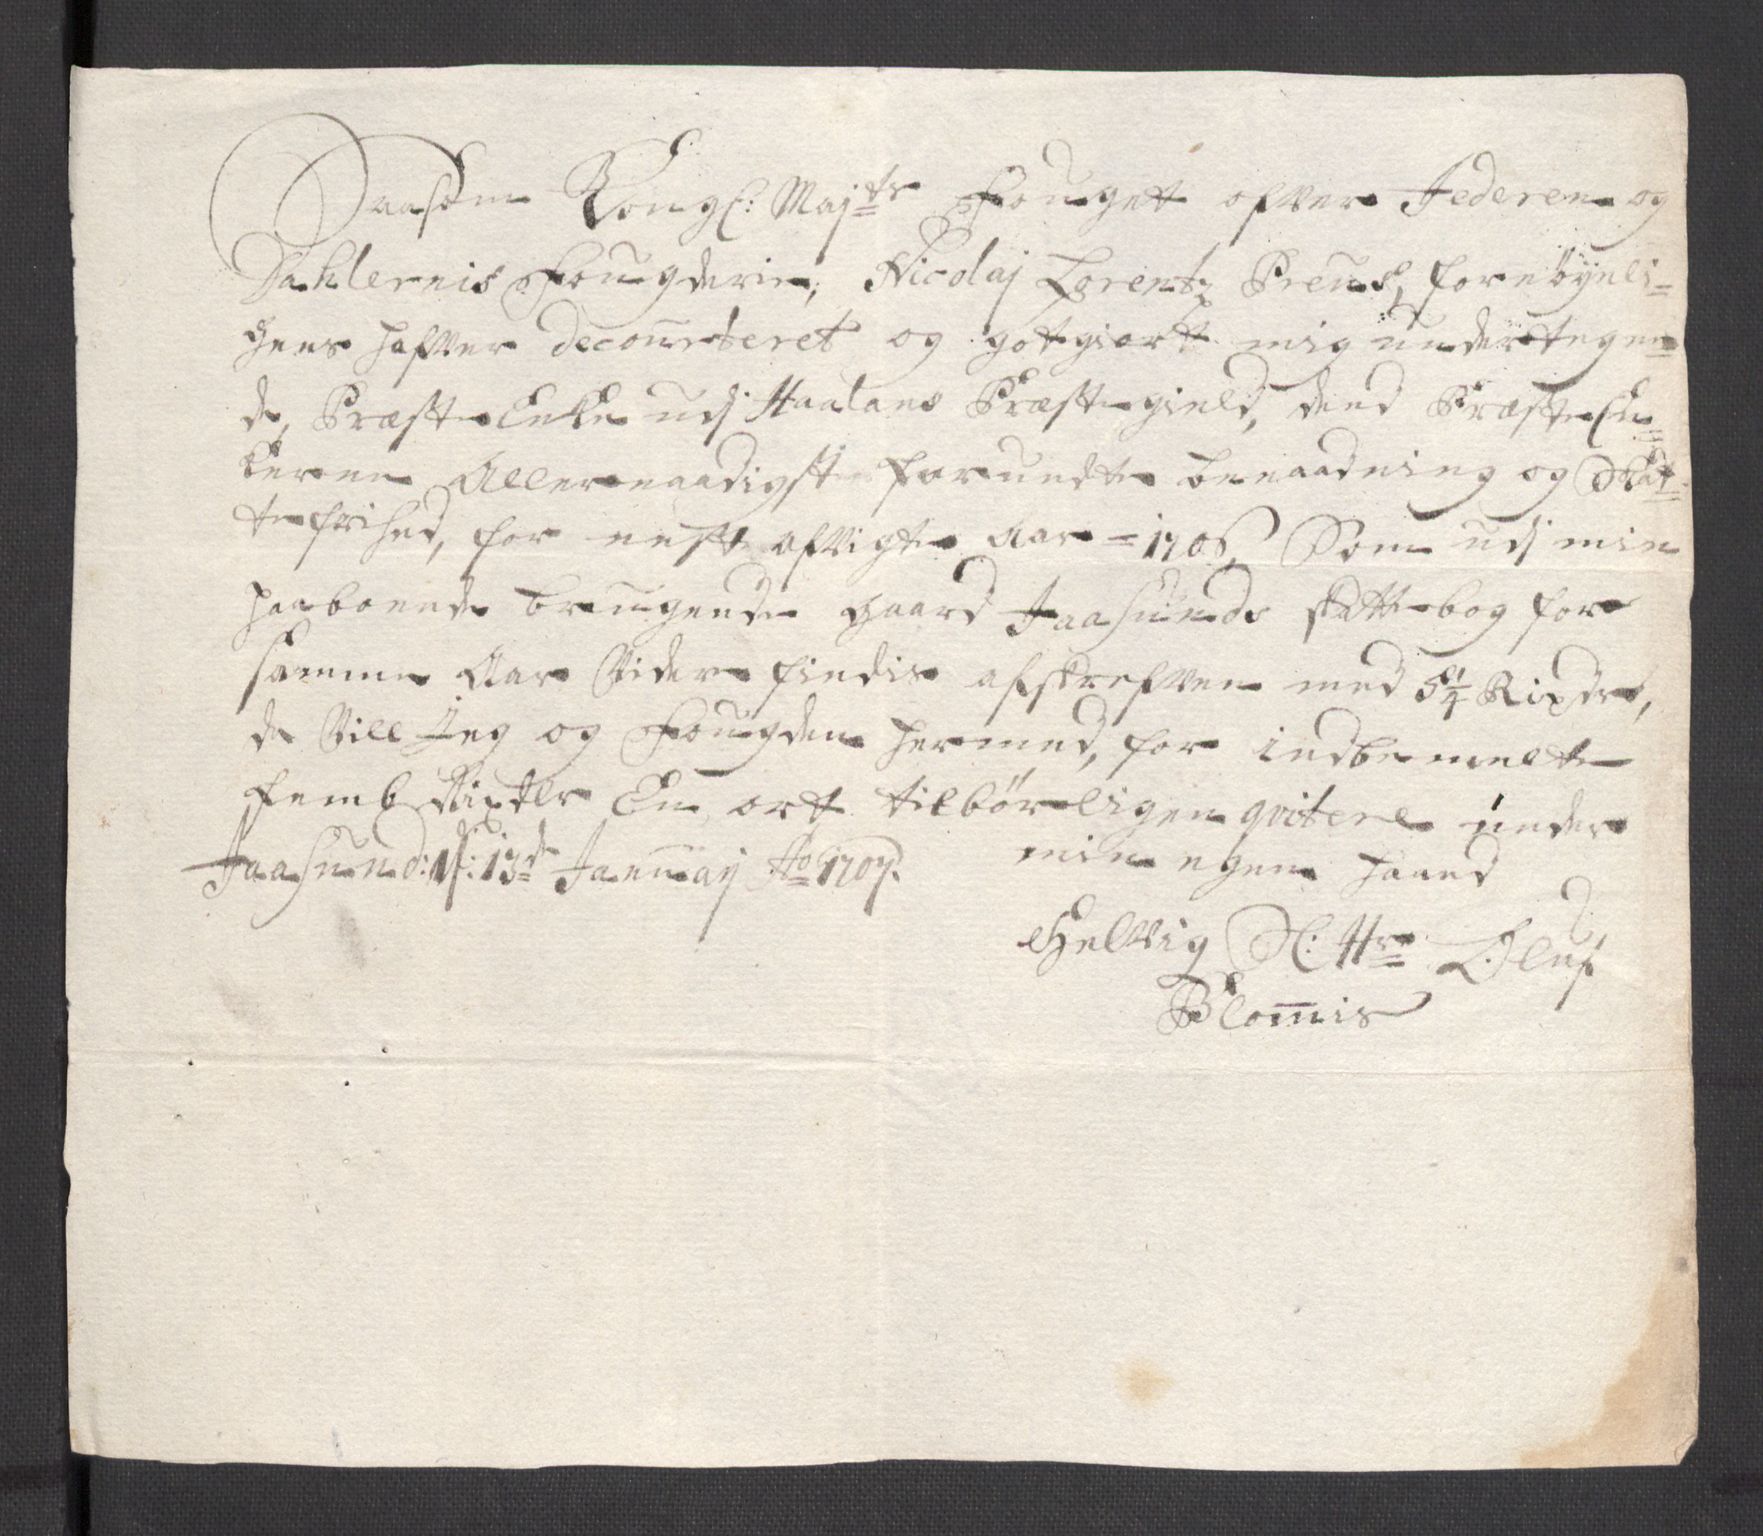 Saasom Kongl: Maj:ts Fouget ofver Jederen og
Dahlernis Fougderie, Nicolaj Lorentz Preus, fornöyeli-
gens hafver decourteret og gotgiort mig undertegne-
de, Præste Encke udj Haalans Præstegield, dend Præste En-
keren Allernaadigste forundte benaadning og Skat-
tefrihed, for nest afvigte Aar 1706, Som udj min
paaboende brugende gaard Jaasunds skattebog for
samme Aar Vider findis afskrefven med 5 1/4 Rixdr,
da Vill Jeg og Fougden hermed, for indbemelte
femb Rixdlr En ort tilbörligen qvitere under
min egen haand
Jaasund: d: 13de Januarij Ao 1707.
Helvig Sl: Hr Oluf
Blommis